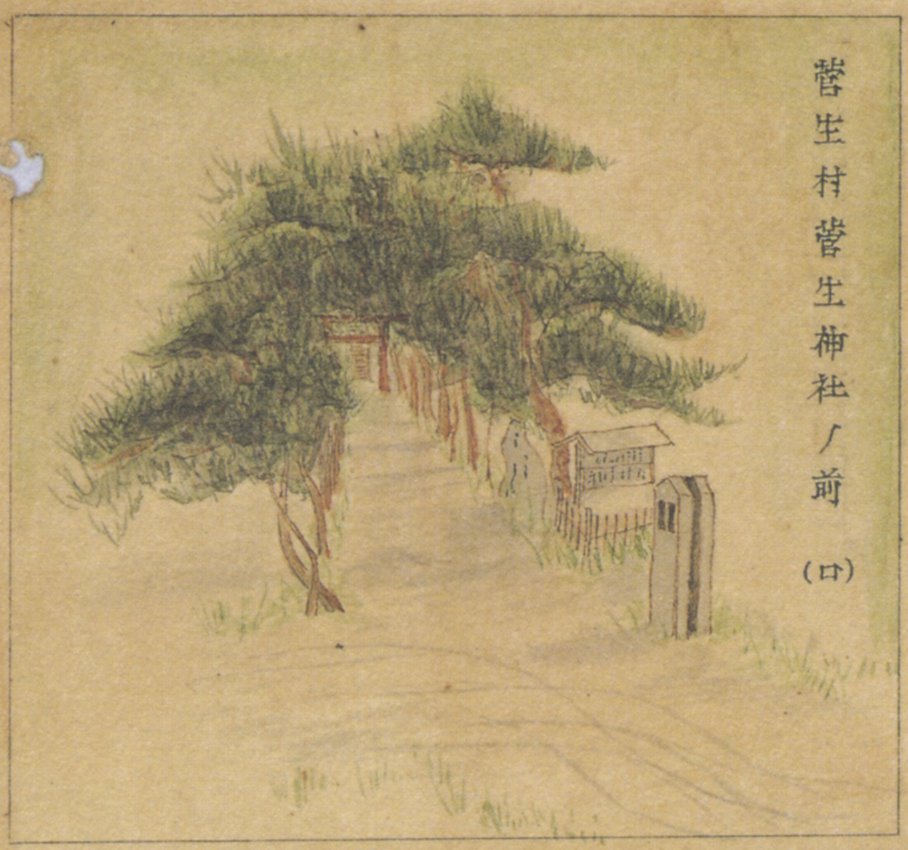 菅生村菅生神社ノ前 (ロ)